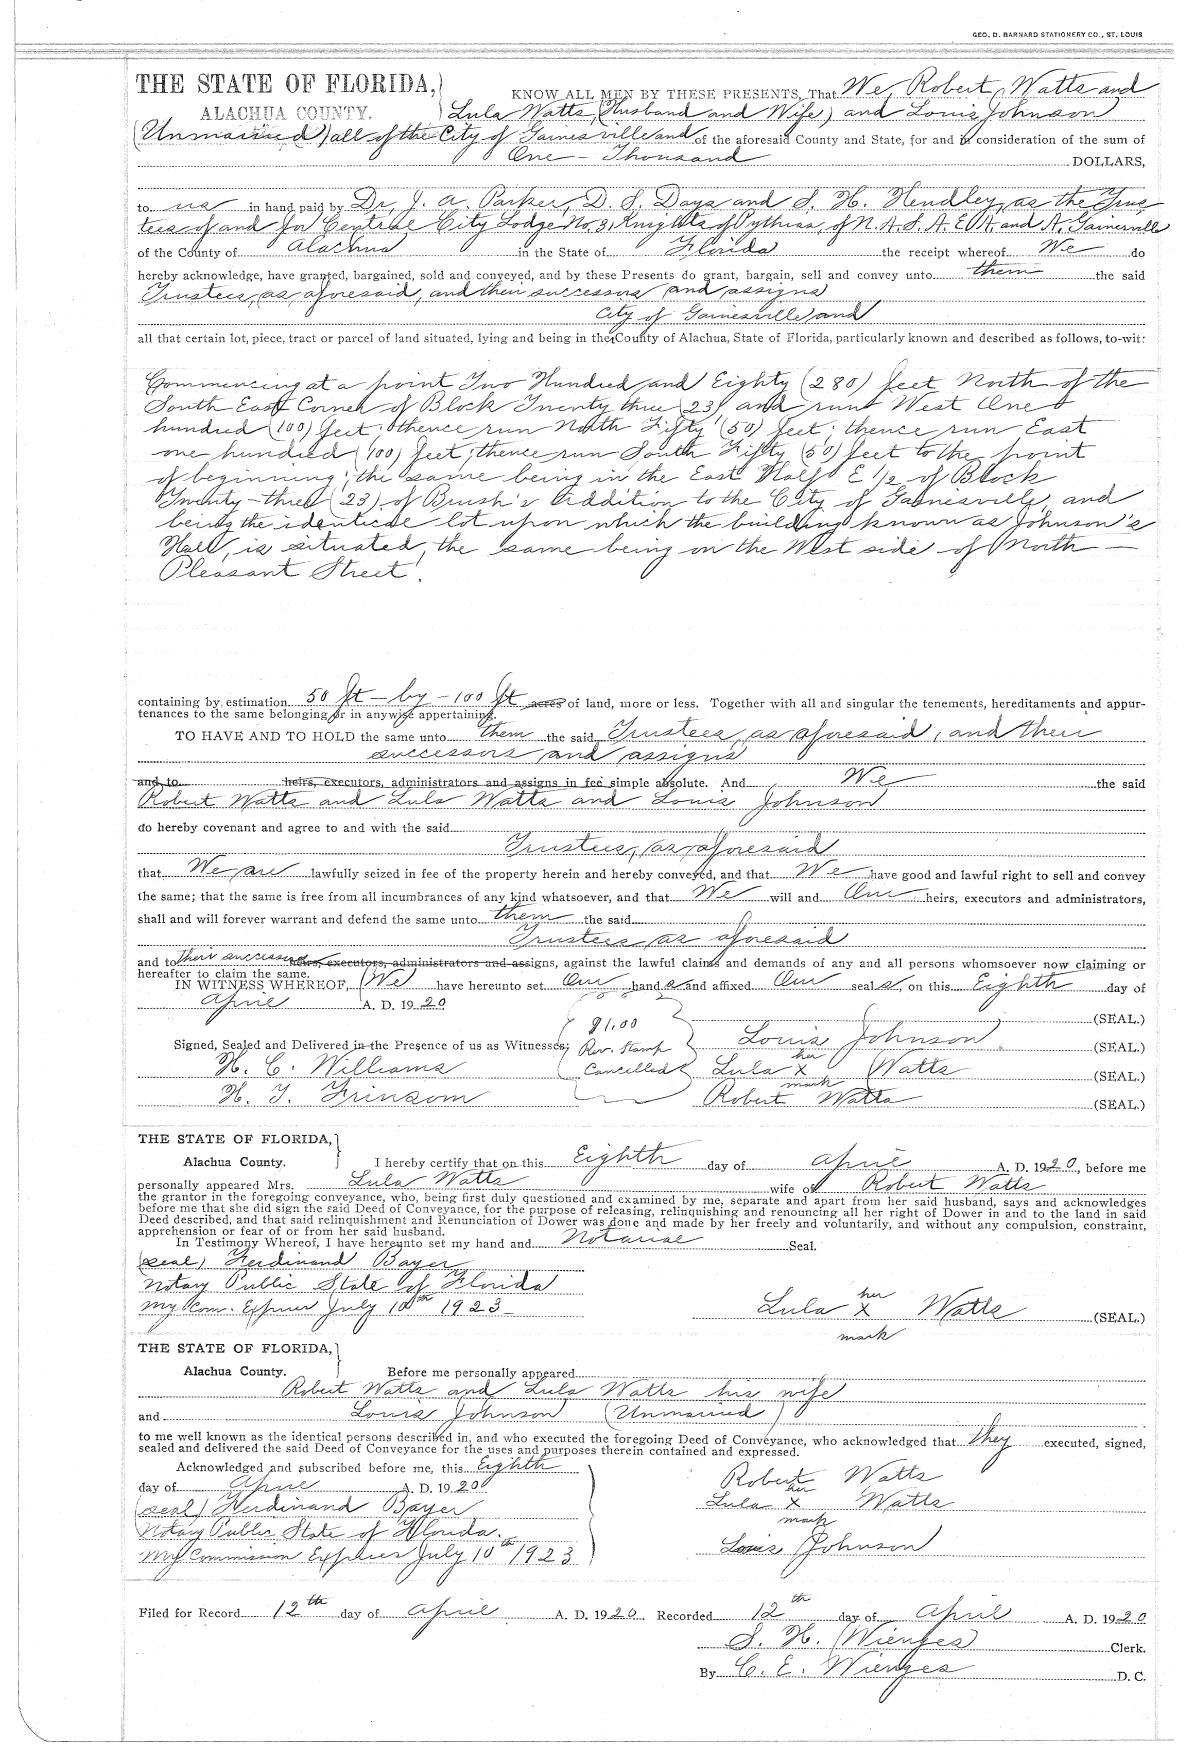 GEO. D. BARNARD STATIONERY CO., ST. LOUIS
THE STATE OF FLORIDA, KNOW ALL MEN BY THESE PRESENTS, That We Robert Watts and
ALACHUA COUNTY. Lula Watts (Husband and Wife) and Louis Johnson
(Unmarried) all of the City of Gainesville and of the aforesaid County and State, for and in consideration of the sum of
One - Thousand DOLLARS,
to us in hand paid by Dr. J. A. Parker, D. S. Days and S. H. Hendley, as the Trus
tees of and for Central City Lodge No. 3, Knights of Pythias, of N.A.S.A.E.A. and A. Gainesville
of the County of Alachua in the State of Florida the receipt whereof We do
hereby acknowledge, have granted, bargained, sold and conveyed, and by these Presents do grant, bargain, sell and convey unto them the said
Trustees, as aforesaid, and their successors and assigns
City of Gainesville and
all that certain lot, piece, tract or parcel of land situated, lying and being in the County of Alachua, State of Florida, particularly known and described as follows, to-wit:
Commencing at a point Two Hundred and Eighty (280) feet North of the
South East Corner of Block Twenty three (23) and run West One
hundred (100) feet; thence run North Fifty (50) feet; thence run East
one hundred (100) feet; thence run South Fifty (50) feet to the point
of beginning; the same being in the East Half E 1/2 of Block
Twenty-three (23) of Brush's Addition to the City of Gainesville, and
being the identical lot upon which the building known as Johnson's
Hall, is situated, the same being on the West side of North —
Pleasant Street.
containing by estimation 50 ft - by - 100 ft acres of land, more or less. Together with all and singular the tenements, hereditaments and appur-
tenances to the same belonging or in anywise appertaining.
TO HAVE AND TO HOLD the same unto them the said Trustees, as aforesaid, and their
successors and assigns
and to heirs, executors, administrators and assigns in fee simple absolute. And We the said
Robert Watts and Lula Watts and Louis Johnson
do hereby covenant and agree to and with the said
Trustees, as aforesaid
that We are lawfully seized in fee of the property herein and hereby conveyed, and that We have good and lawful right to sell and convey
the same; that the same is free from all incumbrances of any kind whatsoever, and that We will and Our heirs, executors and administrators,
shall and will forever warrant and defend the same unto them the said
Trustees as aforesaid
and to their successors heirs, executors, administrators and assigns, against the lawful claims and demands of any and all persons whomsoever now claiming or
hereafter to claim the same.
IN WITNESS WHEREOF, We have hereunto set Our hands and affixed Our seals, on this Eighth day of
April A. D. 1920
(SEAL.)
$1.00
Signed, Sealed and Delivered in the Presence of us as Witnesses; Rev. Stamp Louis Johnson (SEAL.)
H. C. Williams Cancelled Lula her X mark Watts (SEAL.)
H. T. Frinsom Robert Watts (SEAL.)
THE STATE OF FLORIDA,
Alachua County. I hereby certify that on this Eighth day of April A. D. 1920, before me
personally appeared Mrs. Lula Watts wife of Robert Watts
the grantor in the foregoing conveyance, who, being first duly questioned and examined by me, separate and apart from her said husband, says and acknowledges
before me that she did sign the said Deed of Conveyance, for the purpose of releasing, relinquishing and renouncing all her right of Dower in and to the land in said
Deed described, and that said relinquishment and Renunciation of Dower was done and made by her freely and voluntarily, and without any compulsion, constraint,
apprehension or fear of or from her said husband.
In Testimony Whereof, I have hereunto set my hand and Notarial Seal.
(seal) Ferdinand Bayer
Notary Public State of Florida
My Com. Expires July 10th 1923
Lula her X mark Watts (SEAL.)
THE STATE OF FLORIDA,
Alachua County. Before me personally appeared
Robert Watts and Lula Watts his wife
and Louis Johnson (Unmarried)
to me well known as the identical persons described in, and who executed the foregoing Deed of Conveyance, who acknowledged that they executed, signed,
sealed and delivered the said Deed of Conveyance for the uses and purposes therein contained and expressed.
Acknowledged and subscribed before me, this Eighth
day of April A. D. 1920 Robert Watts
(seal) Ferdinand Bayer Lula her X mark Watts
Notary Public State of Florida.
My Commission Expires July 10th 1923 Louis Johnson
Filed for Record 12th day of April A. D. 1920 Recorded 12th day of April A. D. 1920
S. H. Wienges Clerk.
By C. E. Wienges D. C.